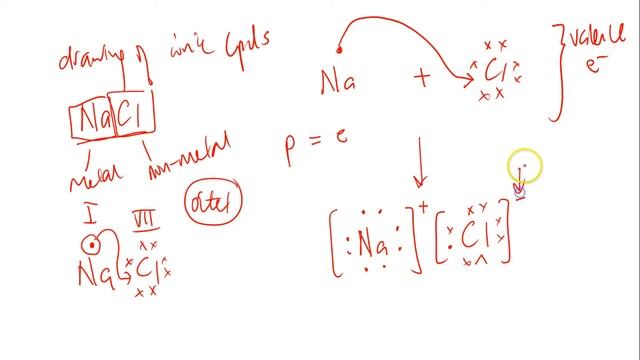 drawing of ionic cpds
NaCl
metal non-metal
I VII
Na Cl
octet
Na + Cl
valence
e-
p = e
[Na]+ [Cl]-